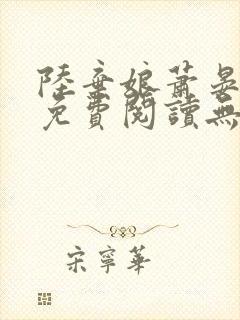 陸棄娘蕭晏
免費閱讀無
宋寧華